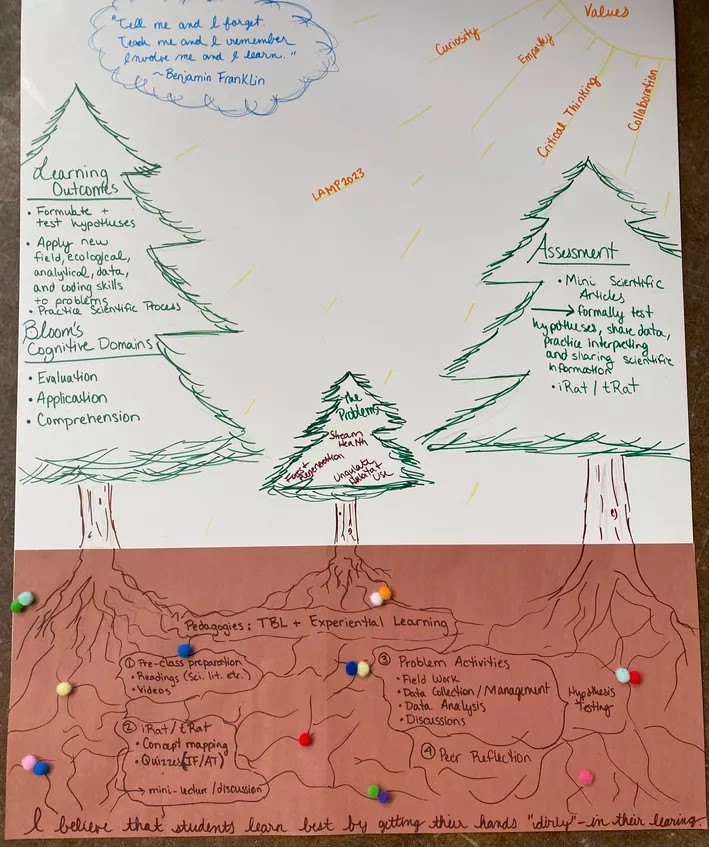 "Tell me and I forget.
Teach me and I remember
Involve me and I learn."
~Benjamin Franklin
Values
Curiosity
Empathy
Critical Thinking
Collaboration
LAMP2023
Learning
Outcomes
• Formulate +
test hypotheses
• Apply new
field, ecological,
analytical, data,
and coding skills
to problems
• Practice Scientific Process
Bloom's
Cognitive Domains
• Evaluation
• Application
• Comprehension
The
Problems
Stream
Health
Forest Regeneration
Ungulate
Habitat
Use
Assessment
• Mini Scientific
Articles
→ formally test
hypotheses, share data,
practice interpreting
and sharing scientific
information
• iRat / tRat
Pedagogies: TBL + Experiential Learning
① Pre-class preparation
• Readings (Sci. lit. etc.)
• Videos
② iRat/tRat
• Concept mapping
• Quizzes (IF/AT)
→ mini-lecture/discussion
③ Problem Activities
• Field Work
• Data Collection/Management
• Data Analysis
• Discussions
Hypothesis
Testing
④ Peer Reflection
I believe that students learn best by getting their hands "dirty" - in their learing.